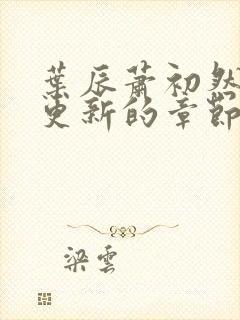 葉辰蕭初然
更新的章節
梁雲